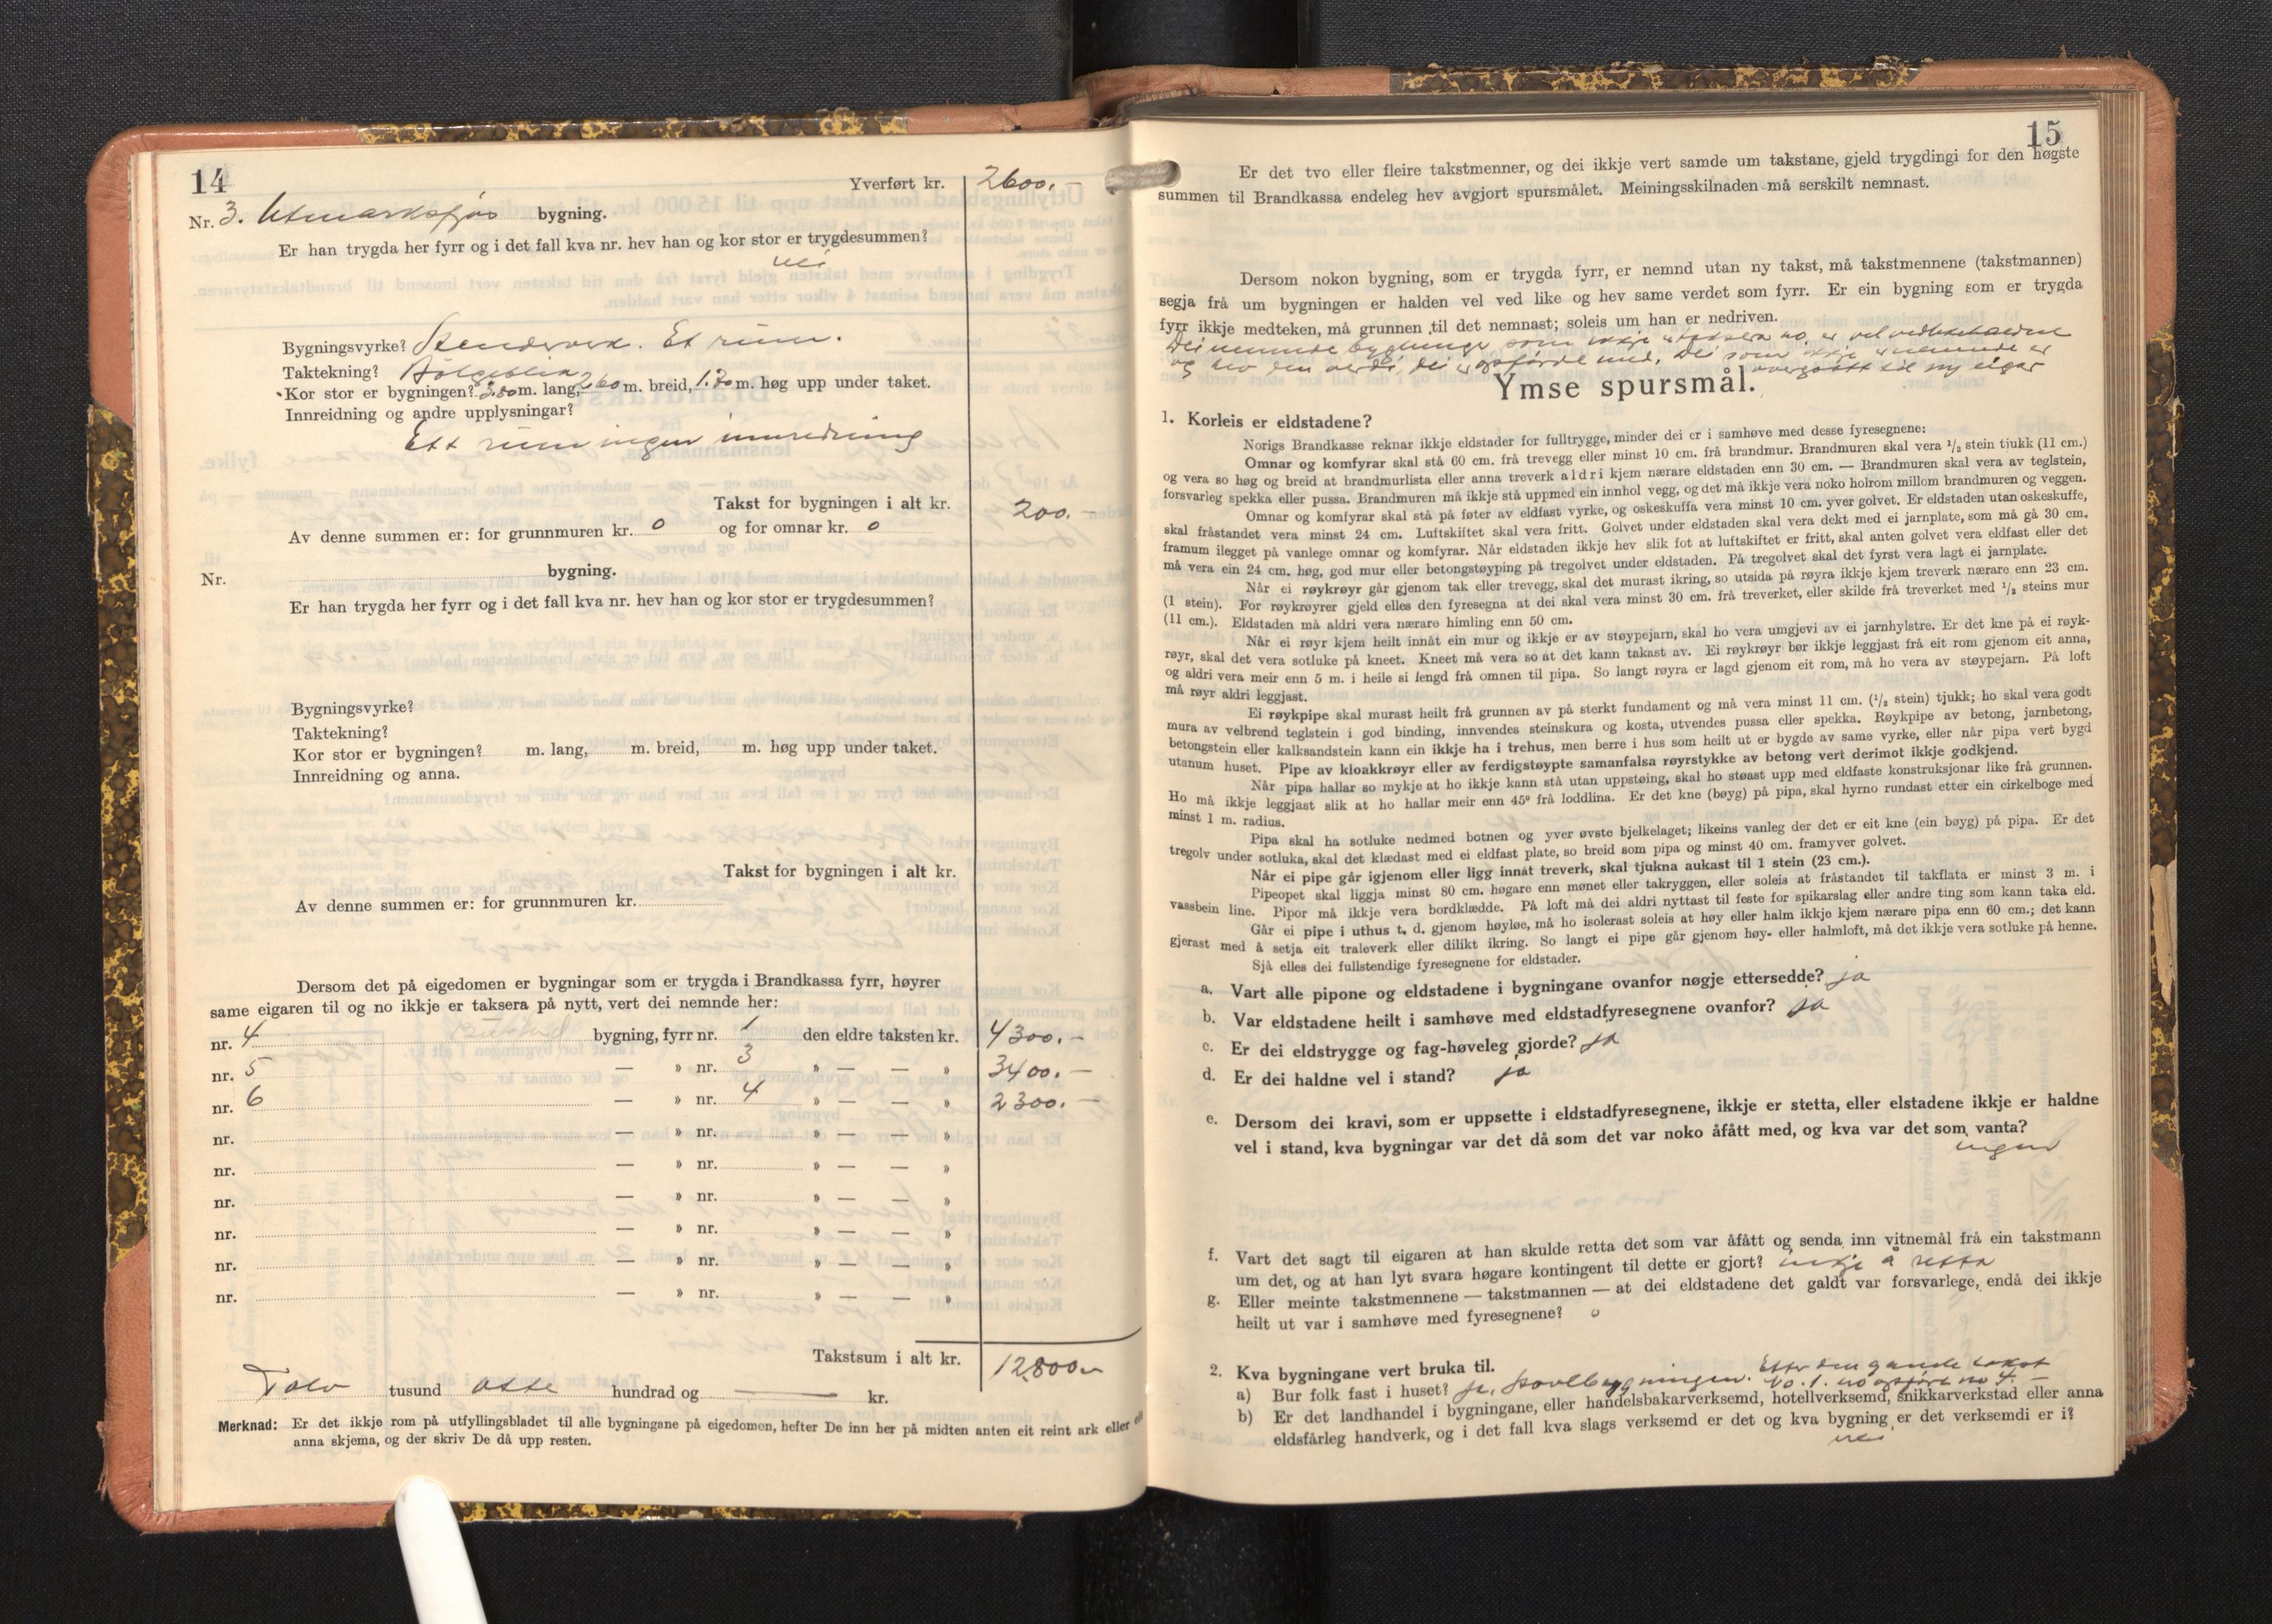 14
Yverført kr. 2600.-
Nr. 3. Utmarksfjøs bygning.
Er han trygda her fyrr og i det fall kva nr. hev han og kor stor er trygdesummen?
nei
Bygningsvyrke? Stenderverk. Et rum.
Taktekning? Bølgeblik
Kor stor er bygningen? 3.80 m. lang, 2.60 m. breid, 1.70 m. høg upp under taket.
Innreidning og andre upplysningar?
Ett rum ingen innredning
Takst for bygningen i alt kr. 200.-
Av denne summen er: for grunnmuren kr. 0 og for omnar kr. 0
Nr. bygning.
Er han trygda her fyrr og i det fall kva nr. hev han og kor stor er trygdesummen?
Bygningsvyrke?
Taktekning?
Kor stor er bygningen? m. lang, m. breid, m. høg upp under taket.
Innreidning og anna.
Takst for bygningen i alt kr.
Av denne summen er: for grunnmuren kr.
Dersom det på eigedomen er bygningar som er trygda i Brandkassa fyrr, høyrer
same eigaren til og no ikkje er taksera på nytt, vert dei nemnde her:
nr. 4 bygning, fyrr nr. 1 den eldre taksten kr. 4300.-
nr. 5 — » nr. 3 » — — » 3400.-
nr. 6 — » nr. 4 » — — » 2300.-
nr. — » nr. » — — »
nr. — » nr. » — — »
nr. — » nr. » — — »
nr. — » nr. » — — »
nr. — » nr. » — — »
nr. — » nr. » — — »
Takstsum i alt kr. 12800.-
Tolv tusund otte hundrad og — kr.
Merknad: Er det ikkje rom på utfyllingsbladet til alle bygningane på eigedomen, hefter De inn her på midten anten eit reint ark eller eit
anna skjema, og der skriv De då upp resten.
15
Er det tvo eller fleire takstmenner, og dei ikkje vert samde um takstane, gjeld trygdingi for den høgste
summen til Brandkassa endeleg hev avgjort spursmålet. Meiningsskilnaden må serskilt nemnast.
Dersom nokon bygning, som er trygda fyrr, er nemnd utan ny takst, må takstmennene (takstmannen)
segja frå um bygningen er halden vel ved like og hev same verdet som fyrr. Er ein bygning som er trygda
fyrr ikkje medteken, må grunnen til det nemnast; soleis um han er nedriven.
Dei nemnde bygninge som ikkje er taksera no, er vel vedlikehaldne
og hev den verdi, dei er opførde med. Dei som ikkje er nemnde er
overgått til ny eigar
Ymse spursmål.
1. Korleis er eldstadene?
Norigs Brandkasse reknar ikkje eldstader for fulltrygge, minder dei er i samhøve med desse fyresegnene:
Omnar og komfyrar skal stå 60 cm. frå trevegg eller minst 10 cm. frå brandmur. Brandmuren skal vera ½ stein tjukk (11 cm.)
og vera so høg og breid at brandmurlista eller anna treverk aldri kjem nærare eldstaden enn 30 cm. — Brandmuren skal vera av teglstein,
forsvarleg spekka eller pussa. Brandmuren må ikkje stå uppmed ein innhol vegg, og det må ikkje vera noko holrom millom brandmuren og veggen.
Omnar og komfyrar skal stå på føter av eldfast vyrke, og oskeskuffa vera minst 10 cm. yver golvet. Er eldstaden utan oskeskuffe,
skal fråstandet vera minst 24 cm. Luftskiftet skal vera fritt. Golvet under eldstaden skal vera dekt med ei jarnplate, som må gå 30 cm.
framum ilegget på vanlege omnar og komfyrar. Når eldstaden ikkje hev slik fot at luftskiftet er fritt, skal anten golvet vera eldfast eller det
må vera ein 24 cm. høg, god mur eller betongstøyping på tregolvet under eldstaden. På tregolvet skal det fyrst vera lagt ei jarnplate.
Når ei røykrøyr går gjenom tak eller trevegg, skal det murast ikring, so utsida på røyra ikkje kjem treverk nærare enn 23 cm.
(1 stein). For røykrøyrer gjeld elles den fyresegna at dei skal vera minst 30 cm. frå treverket, eller skilde frå treverket med ½ steins mur
(11 cm.). Eldstaden må aldri vera nærare himling enn 50 cm.
Når ei røyr kjem heilt innåt ein mur og ikkje er av støypejarn, skal ho vera umgjevi av ei jarnhylstre. Er det kne på ei røyk-
røyr, skal det vera sotluke på kneet. Kneet må vera so at det kann takast av. Ei røykrøyr bør ikkje leggjast frå eit rom gjenom eit anna,
og aldri vera meir enn 5 m. i heile si lengd frå omnen til pipa. So langt røyra er lagd gjenom eit rom, må ho vera av støypejarn. På loft
må røyr aldri leggjast.
Ei røykpipe skal murast heilt frå grunnen av på sterkt fundament og må vera minst 11 cm. (½ stein) tjukk; ho skal vera godt
mura av velbrend teglstein i god binding, innvendes steinskura og kosta, utvendes pussa eller spekka. Røykpipe av betong, jarnbetong,
betongstein eller kalksandstein kann ein ikkje ha i trehus, men berre i hus som heilt ut er bygde av same vyrke, eller når pipa vert bygd
utanum huset. Pipe av kloakkrøyr eller av ferdigstøypte samanfalsa røyrstykke av betong vert derimot ikkje godkjend.
Når pipa hallar so mykje at ho ikkje kann stå utan uppstøing, skal ho støast upp med eldfaste konstruksjonar like frå grunnen.
Ho må ikkje leggjast slik at ho hallar meir enn 45° frå loddlina. Er det kne (bøyg) på pipa, skal hyrno rundast etter ein cirkelboge med
minst 1 m. radius.
Pipa skal ha sotluke nedmed botnen og yver øvste bjelkelaget; likeins vanleg der det er eit kne (ein bøyg) på pipa. Er det
tregolv under sotluka, skal det klædast med ei eldfast plate, so breid som pipa og minst 40 cm. framyver golvet.
Når ei pipe går igjenom eller ligg innåt treverk, skal tjukna aukast til 1 stein (23 cm.).
Pipeopet skal liggja minst 80 cm. høgare enn mønet eller takryggen, eller soleis at fråstandet til takflata er minst 3 m. i
vassbein line. Pipor må ikkje vera bordklædde. På loft må dei aldri nyttast til feste for spikarslag eller andre ting som kann taka eld.
Går ei pipe i uthus t. d. gjenom høyløe, må ho isolerast soleis at høy eller halm ikkje kjem nærare pipa enn 60 cm.; det kann
gjerast med å setja eit traleverk eller dilikt ikring. So langt ei pipe går gjenom høy- eller halmloft, må det ikkje vera sotluke på henne.
Sjå elles dei fullstendige fyresegnene for eldstader.
a. Vart alle pipone og eldstadene i bygningane ovanfor nøgje ettersedde? ja
b. Var eldstadene heilt i samhøve med eldstadfyresegnene ovanfor? ja
c. Er dei eldstrygge og fag-høveleg gjorde? ja
d. Er dei haldne vel i stand? ja
e. Dersom dei kravi, som er uppsette i eldstadfyresegnene, ikkje er stetta, eller elstadene ikkje er haldne
vel i stand, kva bygningar var det då som det var noko åfått med, og kva var det som vanta?
ingen
f. Vart det sagt til eigaren at han skulde retta det som var åfått og senda inn vitnemål frå ein takstmann
um det, og at han lyt svara høgare kontingent til dette er gjort? inkje å retta
g. Eller meinte takstmennene — takstmannen — at dei eldstadene det galdt var forsvarlege, endå dei ikkje
heilt ut var i samhøve med fyresegnene? 0
2. Kva bygningane vert bruka til.
Etter den gamle takst
a) Bur folk fast i huset? ja, no. 1. no opført no 4. -
b) Er det landhandel i bygningane, eller handelsbakarverksemd, hotellverksemd, snikkarverkstad eller anna
eldsfårleg handverk, og i det fall kva slags verksemd er det og kva bygning er det verksemdi er i?
nei